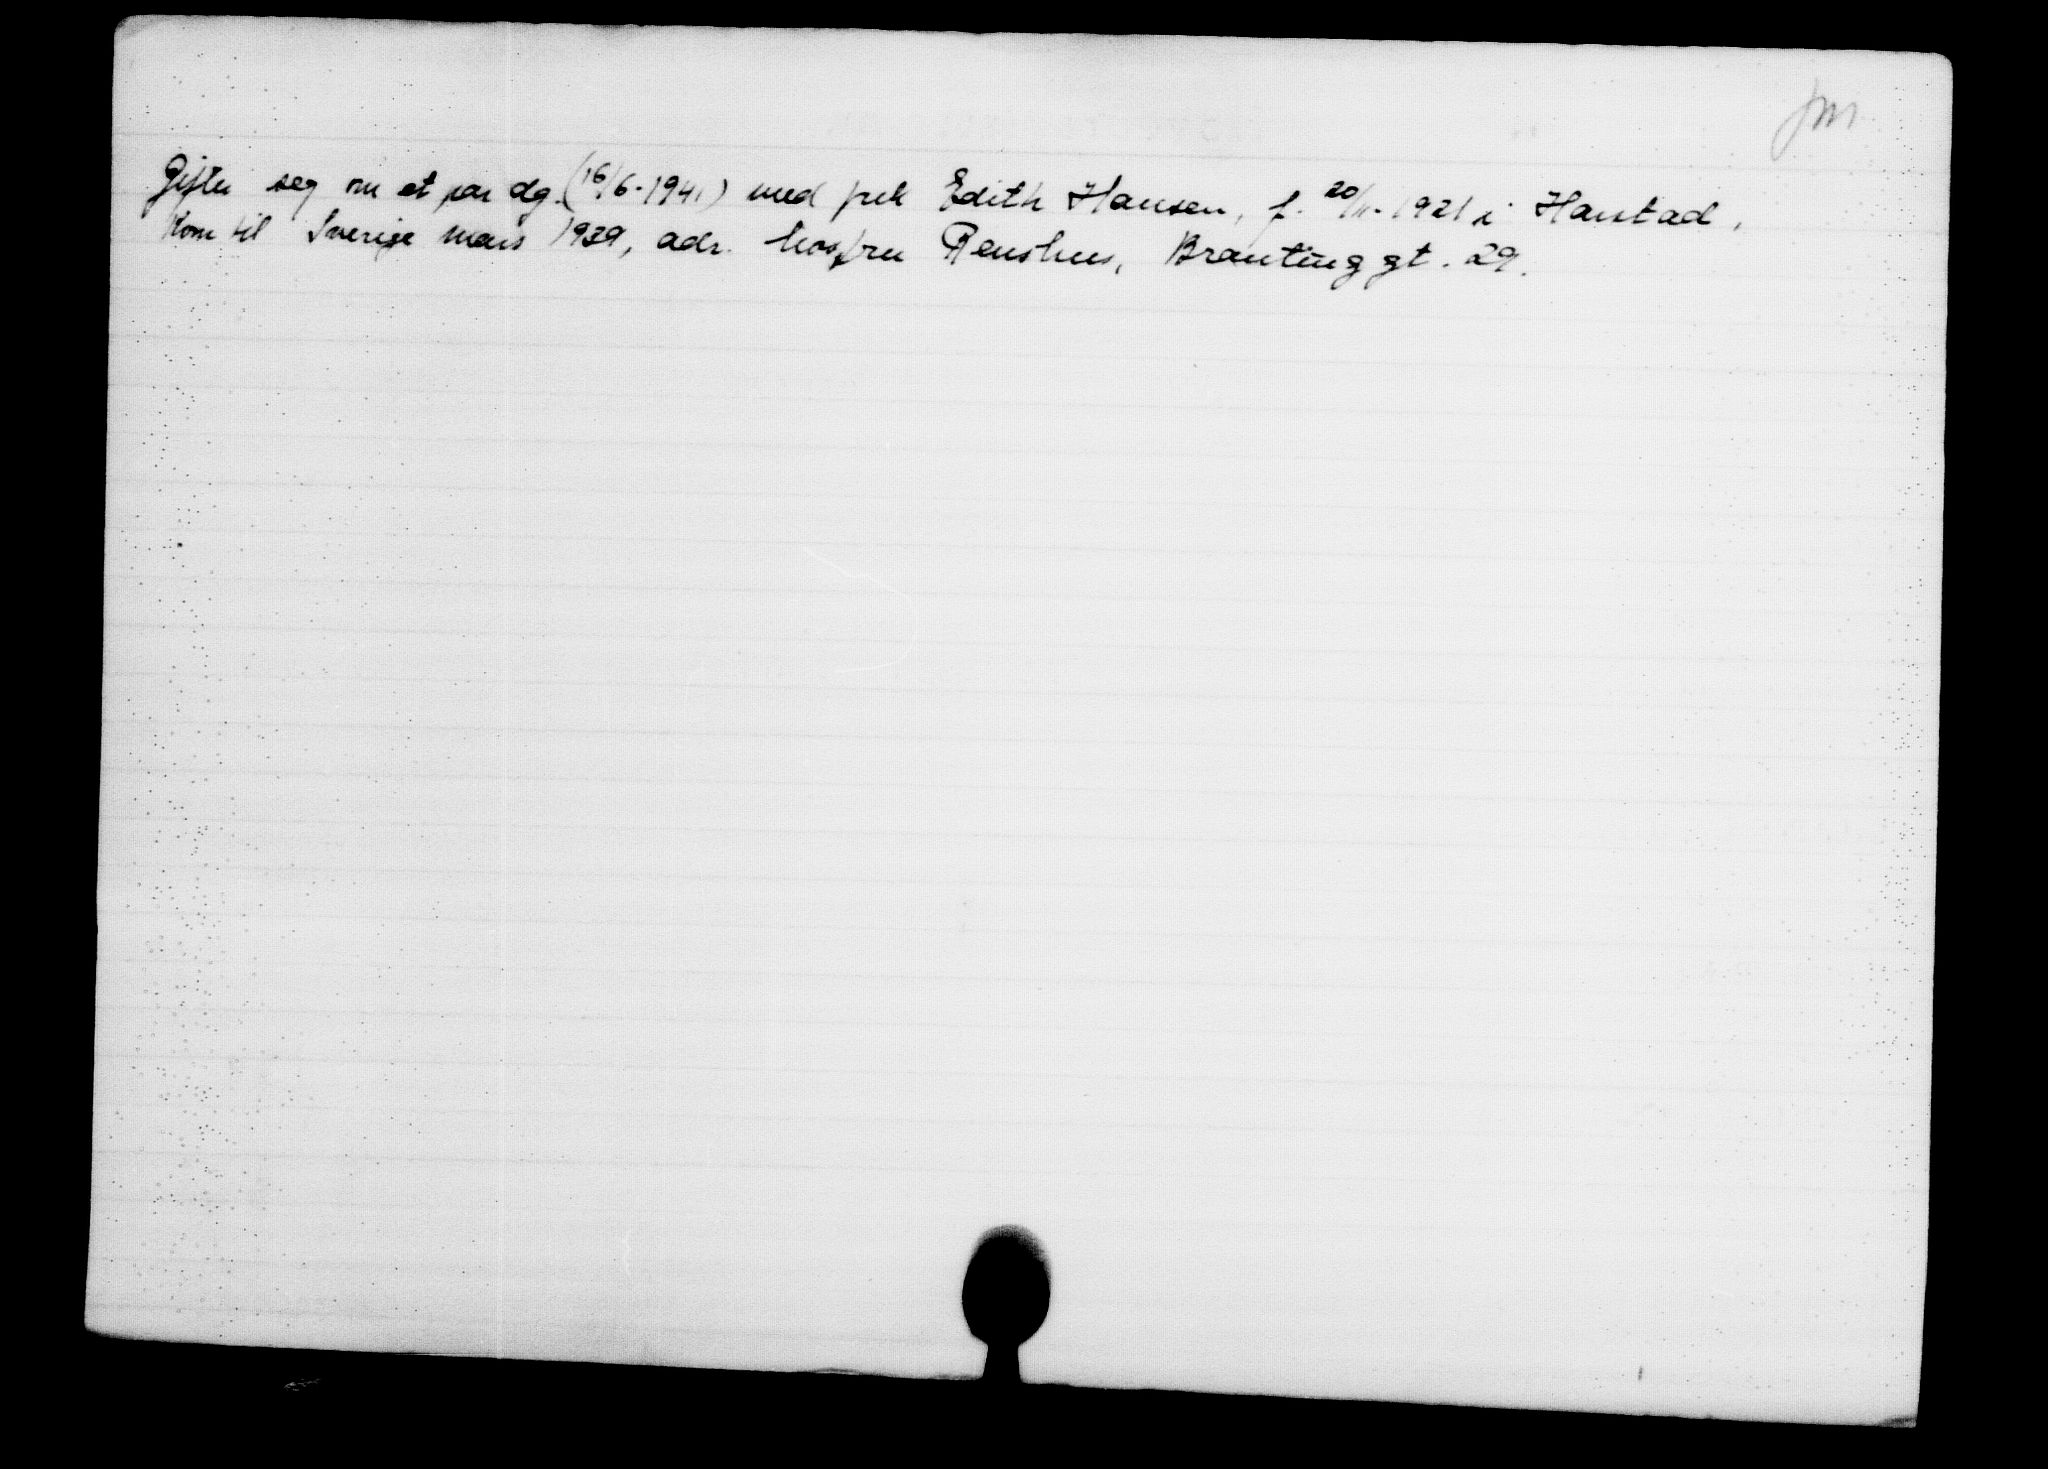 Gifter seg om et par dg. (16/6-1941) med frk Edith Hansen, f. 20/11-1921 i Harstad,
Kom til Sverige mars 1939, adr. hos fru Renshus, Branting gt. 29.